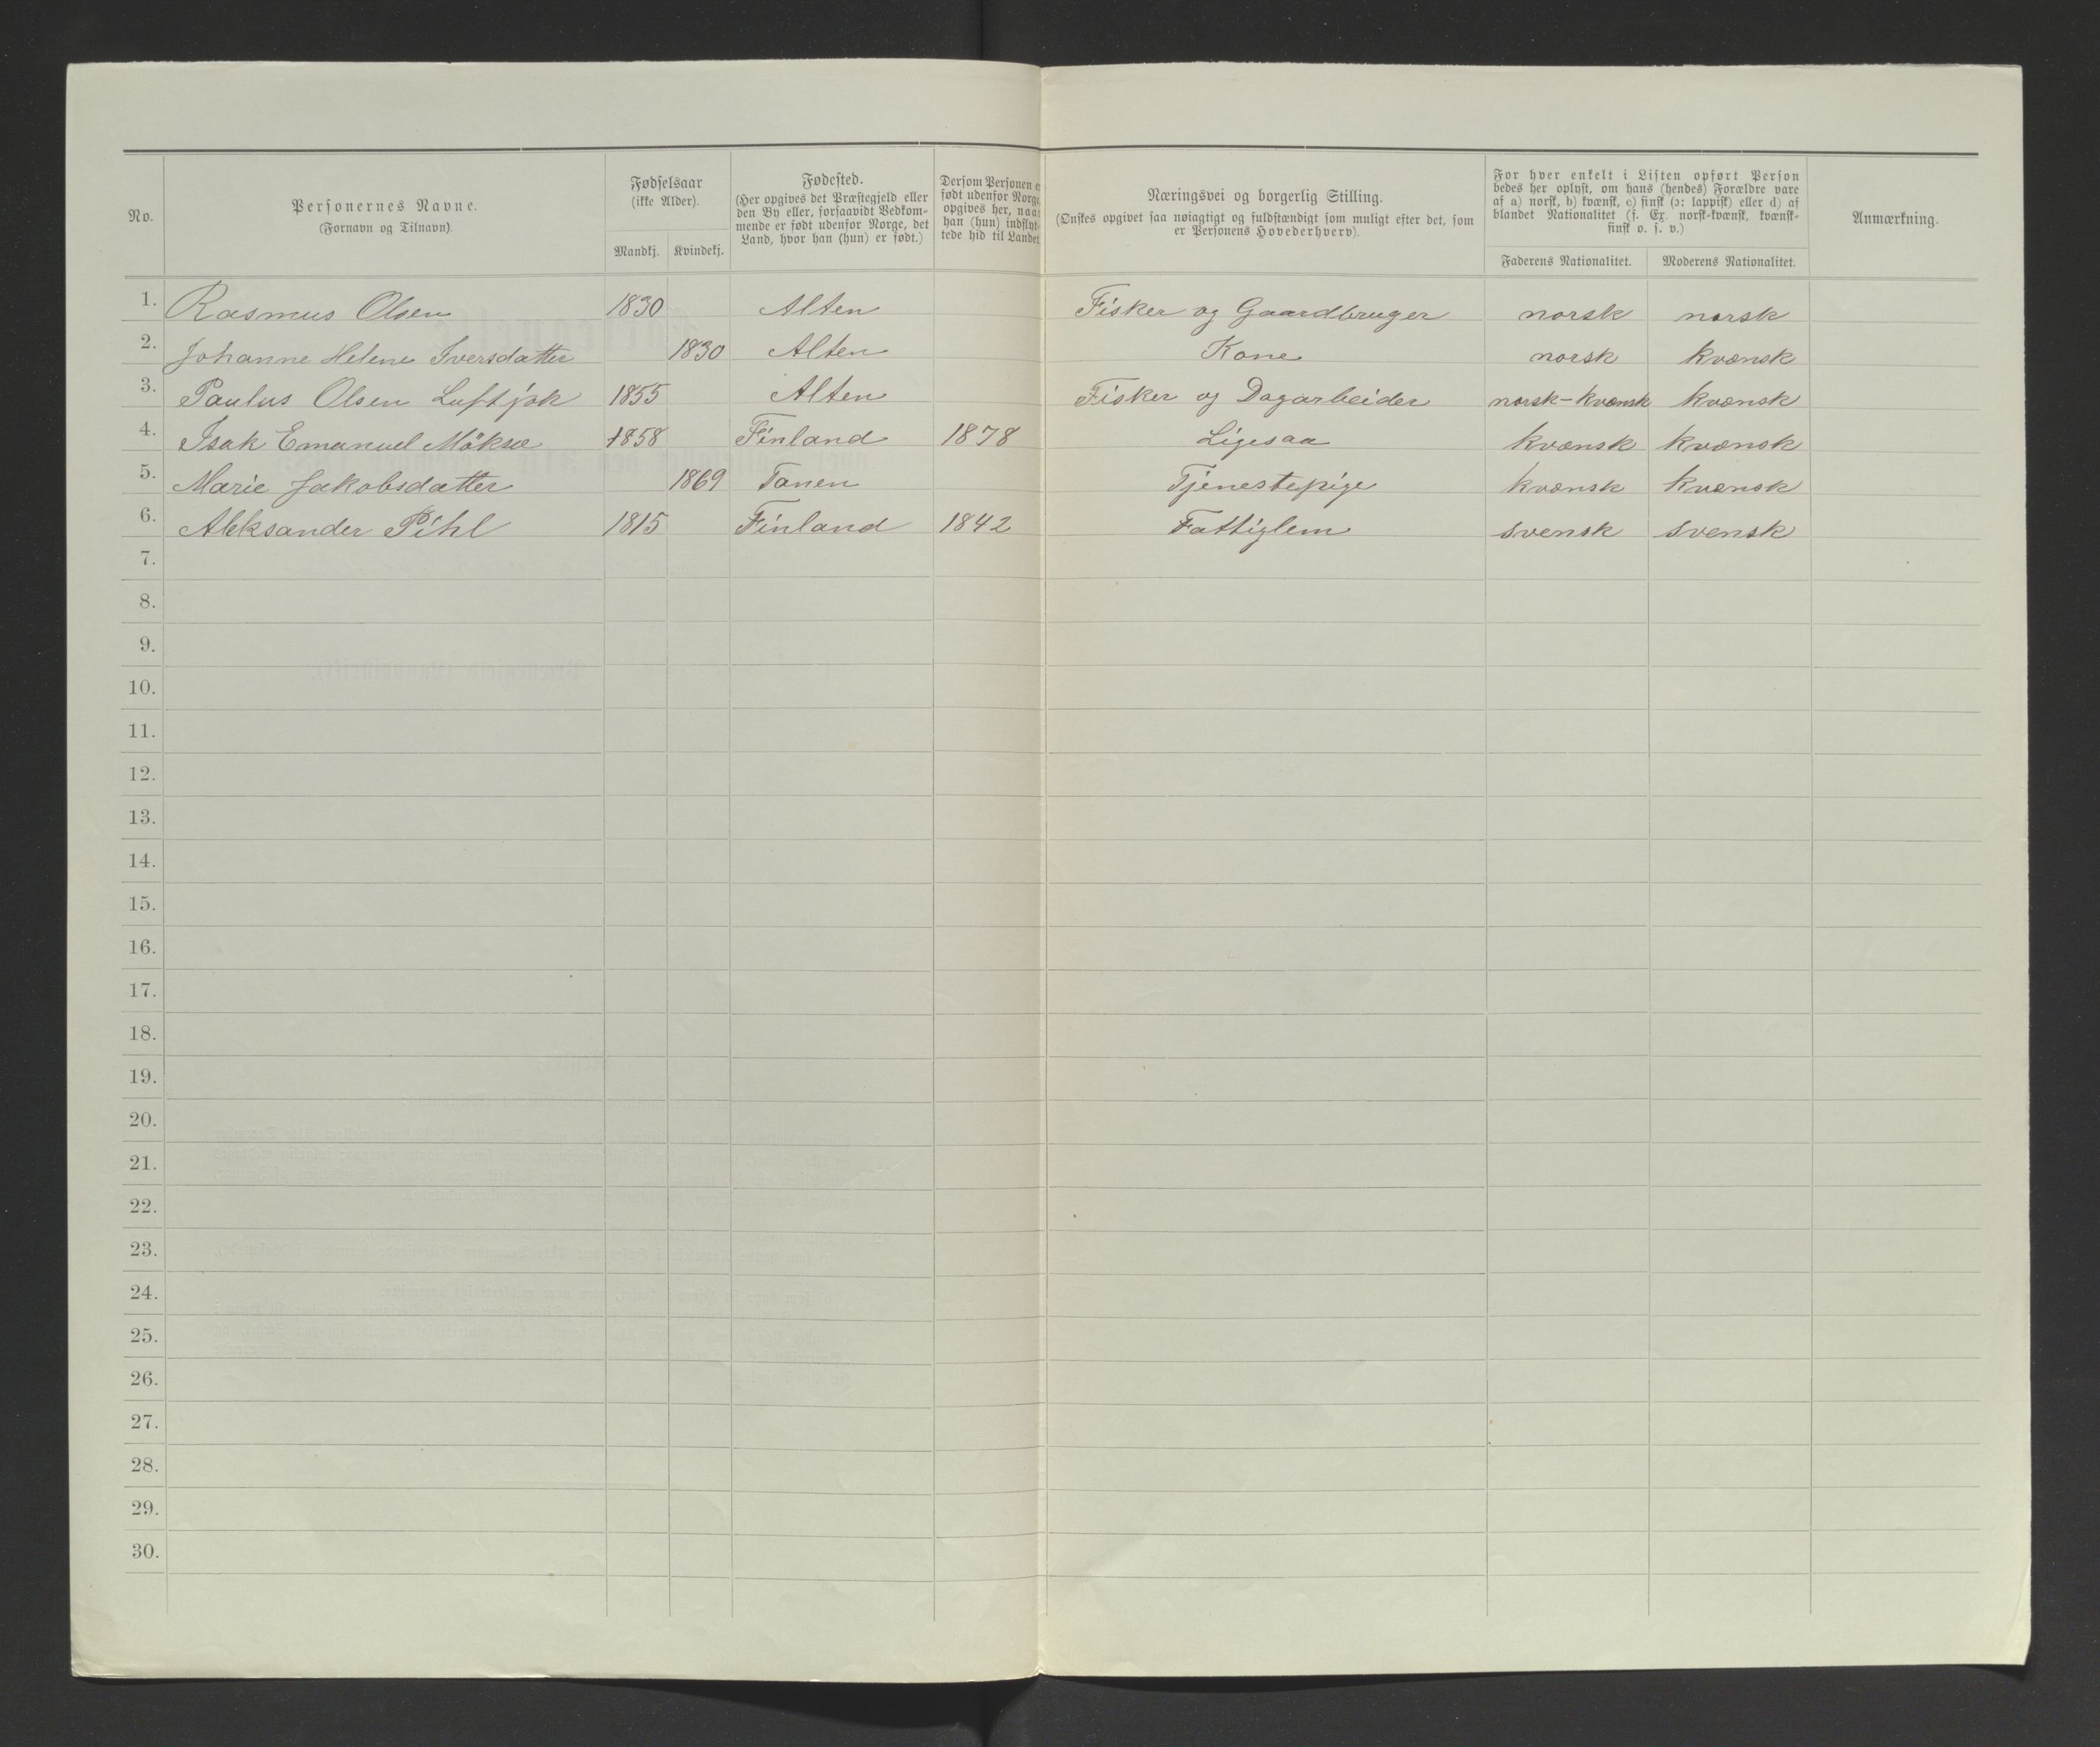 No.
Personernes Navne.
(Fornavn og Tilnavn).
Fødselsaar
(ikke Alder).
Mandkj. Kvindekj.
Fødested.
(Her opgives det Præstegjeld eller
den By eller, forsaavidt Vedkom-
mende er født udenfor Norge, det
Land, hvor han (hun) er født.)
Dersom Personen er
født udenfor Norge,
opgives her, naar
han (hun) indflyt-
tede hid til Landet
Næringsvei og borgerlig Stilling.
(Ønskes opgivet saa nøiagtigt og fuldstændigt som muligt efter det, som
er Personens Hovederhverv).
For hver enkelt i Listen opført Person
bedes her oplyst, om hans (hendes) Forældre vare
af a) norsk, b) kvænsk, c) finsk (ɔ: lappisk) eller d) af
blandet Nationalitet (f. Ex. norsk-kvænsk, kvænsk-
finsk o. s. v.)
Faderens Nationalitet. Moderens Nationalitet.
Anmærkning.
1. Rasmus Olsen 1830 Alten Fisker og Gaardbruger norsk norsk
2. Johanne Helene Iversdatter 1830 Alten Kone norsk kvænsk
3. Paulus Olsen Luftjok 1855 Alten Fisker og Dagarbeider norsk-kvænsk kvænsk
4. Isak Emanuel Mökse 1858 Finland 1878 Ligesaa kvænsk kvænsk
5. Marie Jakobsdatter 1869 Tanen Tjenestepige kvænsk kvænsk
6. Aleksander Pihl 1815 Finland 1842 Fattiglem svensk svensk
7.
8.
9.
10.
11.
12.
13.
14.
15.
16.
17.
18.
19.
20.
21.
22.
23.
24.
25.
26.
27.
28.
29.
30.